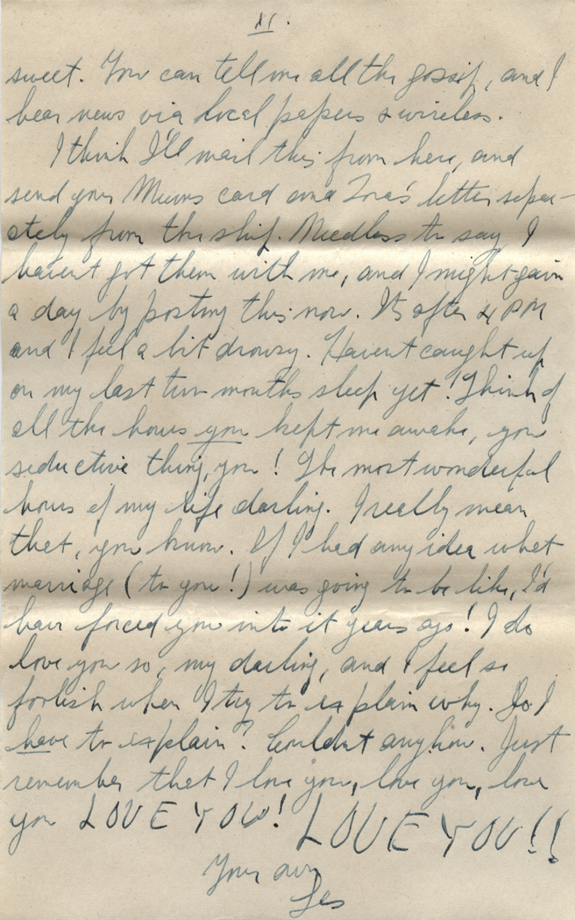 XI.
sweet. You can tell me all the gossip, and I
hear news via local papers & wireless.
I think I'll mail this from here, and
send your Mum's card and letter seper-
ately from the ship. Needless to say I
haven't got them with me, and I might gain
a day by posting this now. It's after 4 PM
and I feel a bit drowsy. Haven't caught up
on my last two months sleep yet! Think of
all the hours you kept me awake, you
seductive thing, you! The most wonderful
hours of my life darling. I really mean
that, you know. If I had any idea what
marriage (to you!) was going to be like, I'd
have forced you into it years ago! I do
love you so, my darling, and I feel so
foolish when I try to explain why. Do I
have to explain? Couldn't anyhow. Just
remember that I love you, love you, love
you LOVE YOU! LOVE YOU!!
Your own
Les